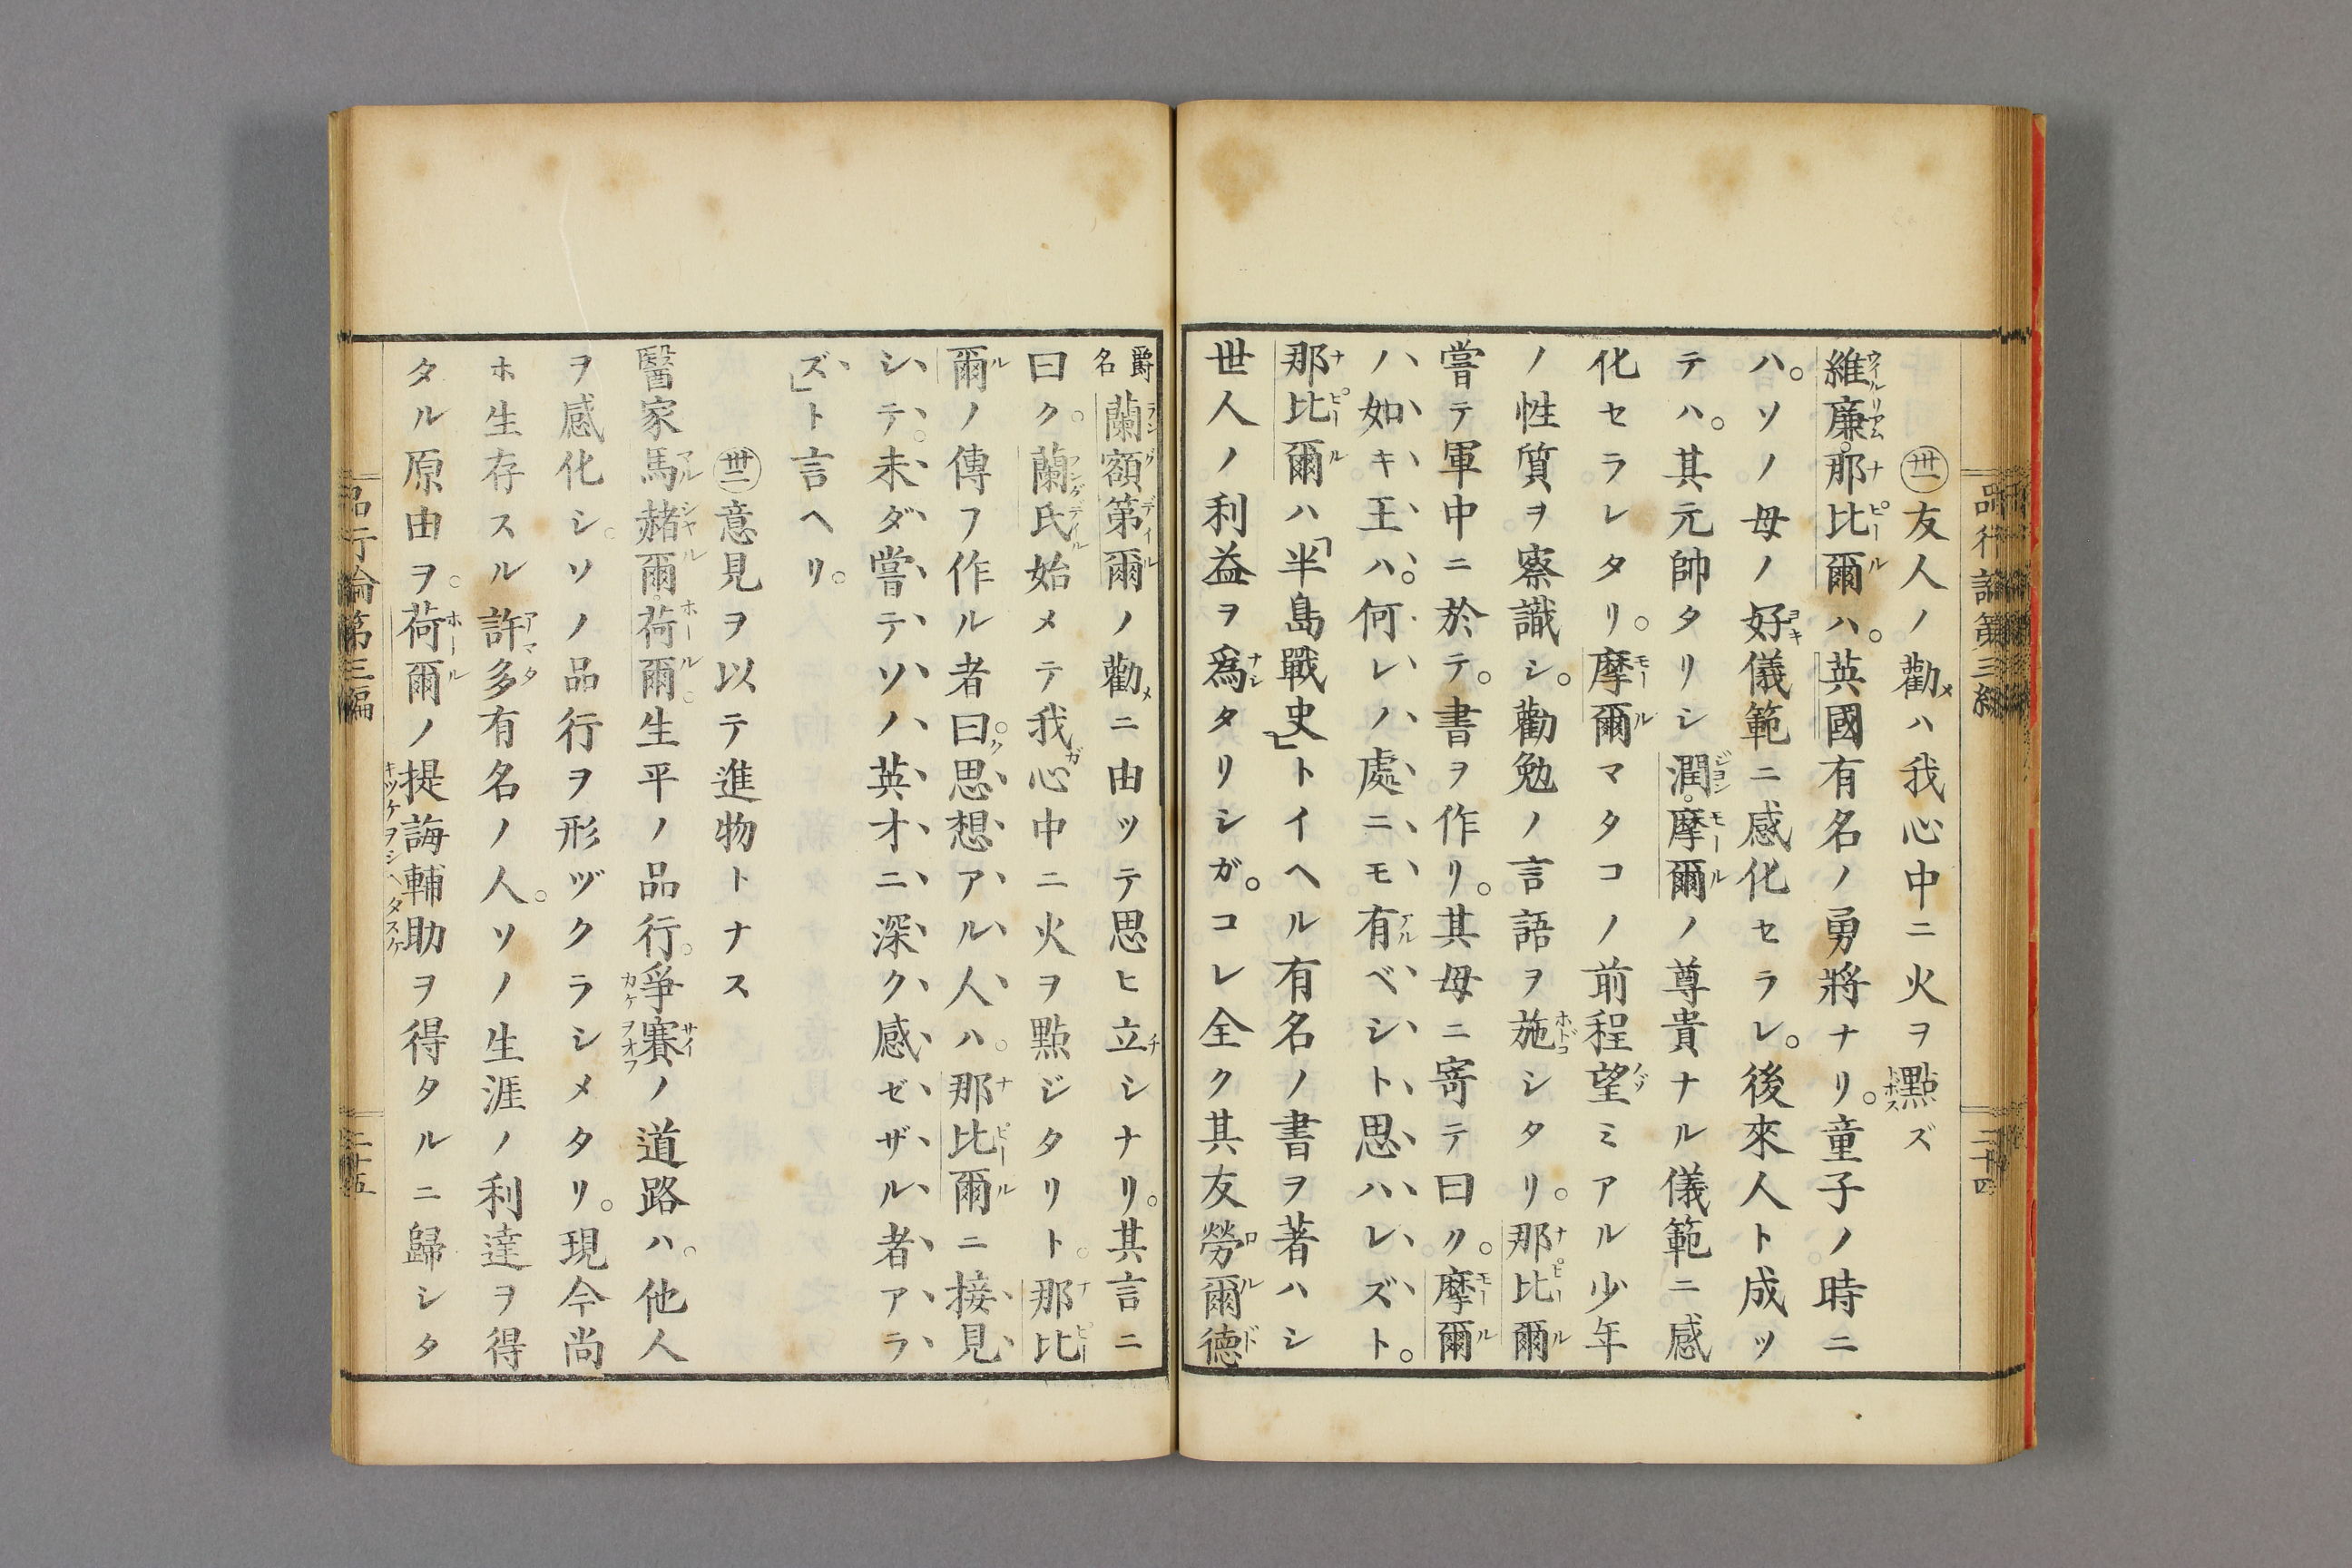 品行論第三編 二十四
㊤友人ノ勸メハ我心中ニ火ヲ點ズ
維廉。那比爾ハ。英國有名ノ勇將ナリ。童子ノ時ニ
ハ。ソノ母ノ好儀範ニ感化セラレ。後來人ト成ッ
テハ。其元帥タリシ潤。摩爾ノ尊貴ナル儀範ニ感
化セラレタリ。摩爾マタコノ前程望ミアル少年
ノ性質ヲ察識シ。勸勉ノ言語ヲ施シタリ。那比爾
嘗テ軍中ニ於テ。書ヲ作リ。其母ニ寄テ曰ク。摩爾
ノ如キ王ハ。何レノ處ニモ有ベシト思ハレズト。
那比爾ハ「半島戰史」トイヘル有名ノ書ヲ著ハシ
世人ノ利益ヲ爲タリシガ。コレ全ク其友勞爾德
爵名蘭額第爾ノ勸メニ由ッテ思ヒ立チシナリ。其言ニ
曰ク。蘭氏始メテ我ガ心中ニ火ヲ點ジタリト。那比
爾ノ傳フ作ル者曰ク。思想アル人ハ。那比爾ニ接見
シテ。未ダ嘗テソノ英才ニ深ク感ゼザル者アラ
ズ」ト言ヘリ。
㊥意見ヲ以テ進物トナス
醫家馬赭爾。荷爾。生平ノ品行。爭賽ノ道路ハ。他人
ヲ感化シ。ソノ品行ヲ形ヅクラシメタリ。現今尚
ホ生存スル許多有名ノ人。ソノ生涯ノ利達ヲ得
タル原由ヲ。荷爾ノ提誨輔助ヲ得タルニ歸シタ
品行論第三編 二十五